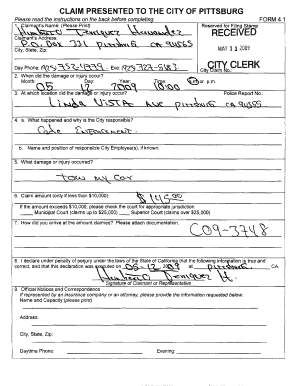 CLAIM PRESENTED TO THE CITY OF PITTSBURG
Please read the instructions on the back before completing FORM 4.1
1. Claimant's Name: (Please Print) Reserved for Filing Stamp
Humberto Deniguez Hernandez RECEIVED
Claimant's Address:
P.O. Box 331 Pittsburg CA 94565
City, State, Zip: MAY 12 2009
CITY CLERK
Day Phone: Eve: City Claim No.
2. When did the damage or injury occur?
Month Day: Year Time: or p.m.
05 12 2009 10:00
3. At which location did the damage or injury occur? Police Report No.:
Linda Vista Ave Pittsburg CA 94565
4. a. What happened and why is the City responsible?
Code Enforcement.
b. Name and position of responsible City Employee(s), if known:
5. What damage or injury occurred?
tow my car
6. Claim amount (only if less than $10,000): $145.00
If the amount exceeds $10,000, please check the court for appropriate jurisdiction:
Municipal Court (claims up to $25,000) Superior Court (claims over $25,000)
7. How did you arrive at the amount claimed? Please attach documentation.
C09-3748
8. I declare under penalty of perjury under the laws of the State of California that the following information is true and
correct, and that this declaration was executed on 05-12 2009 at Pittsburg, CA
Signature of Claimant or Representative
9. Official Notices and Correspondence
If represented by an insurance company or an attorney, please provide the information requested below:
Name and Capacity (please print)
Address:
City, State, Zip:
Daytime Phone: Evening: